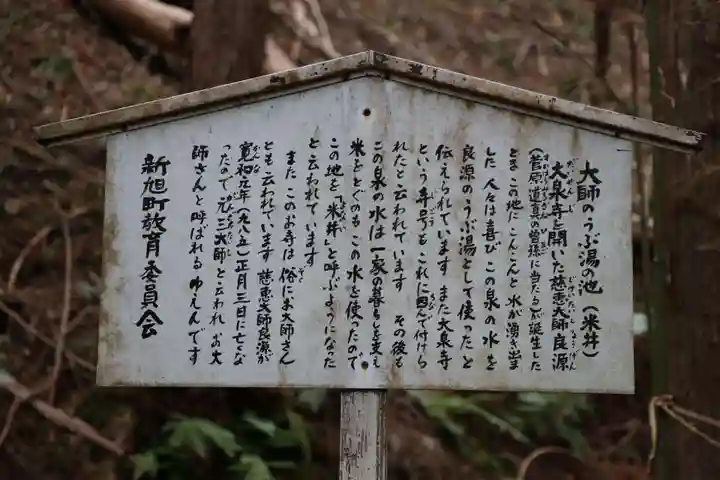 大師のうぶ湯の池（米井）
大泉寺を開いた慈恵大師良源
（菅原道真の曽孫に当たる）が誕生した
とき この地にこんこんと水が湧き出ま
した 人々は喜び この泉の水を
良源のうぶ湯として使ったと
伝えられています また大泉寺
という寺号もこれに因んで付けら
れたと云われています その後も
この泉の水は一家の暮らしを支え
米をとぐのもこの水を使ったので
この地を「米井」と呼ぶようになった
と云われています
また このお寺は俗に米大師さん
とも云われています 慈恵大師良源が
寛和元年（九八五）正月三日に亡くな
ったので 元三大師と云われ お大
師さんと呼ばれるゆえんです
新旭町教育委員会